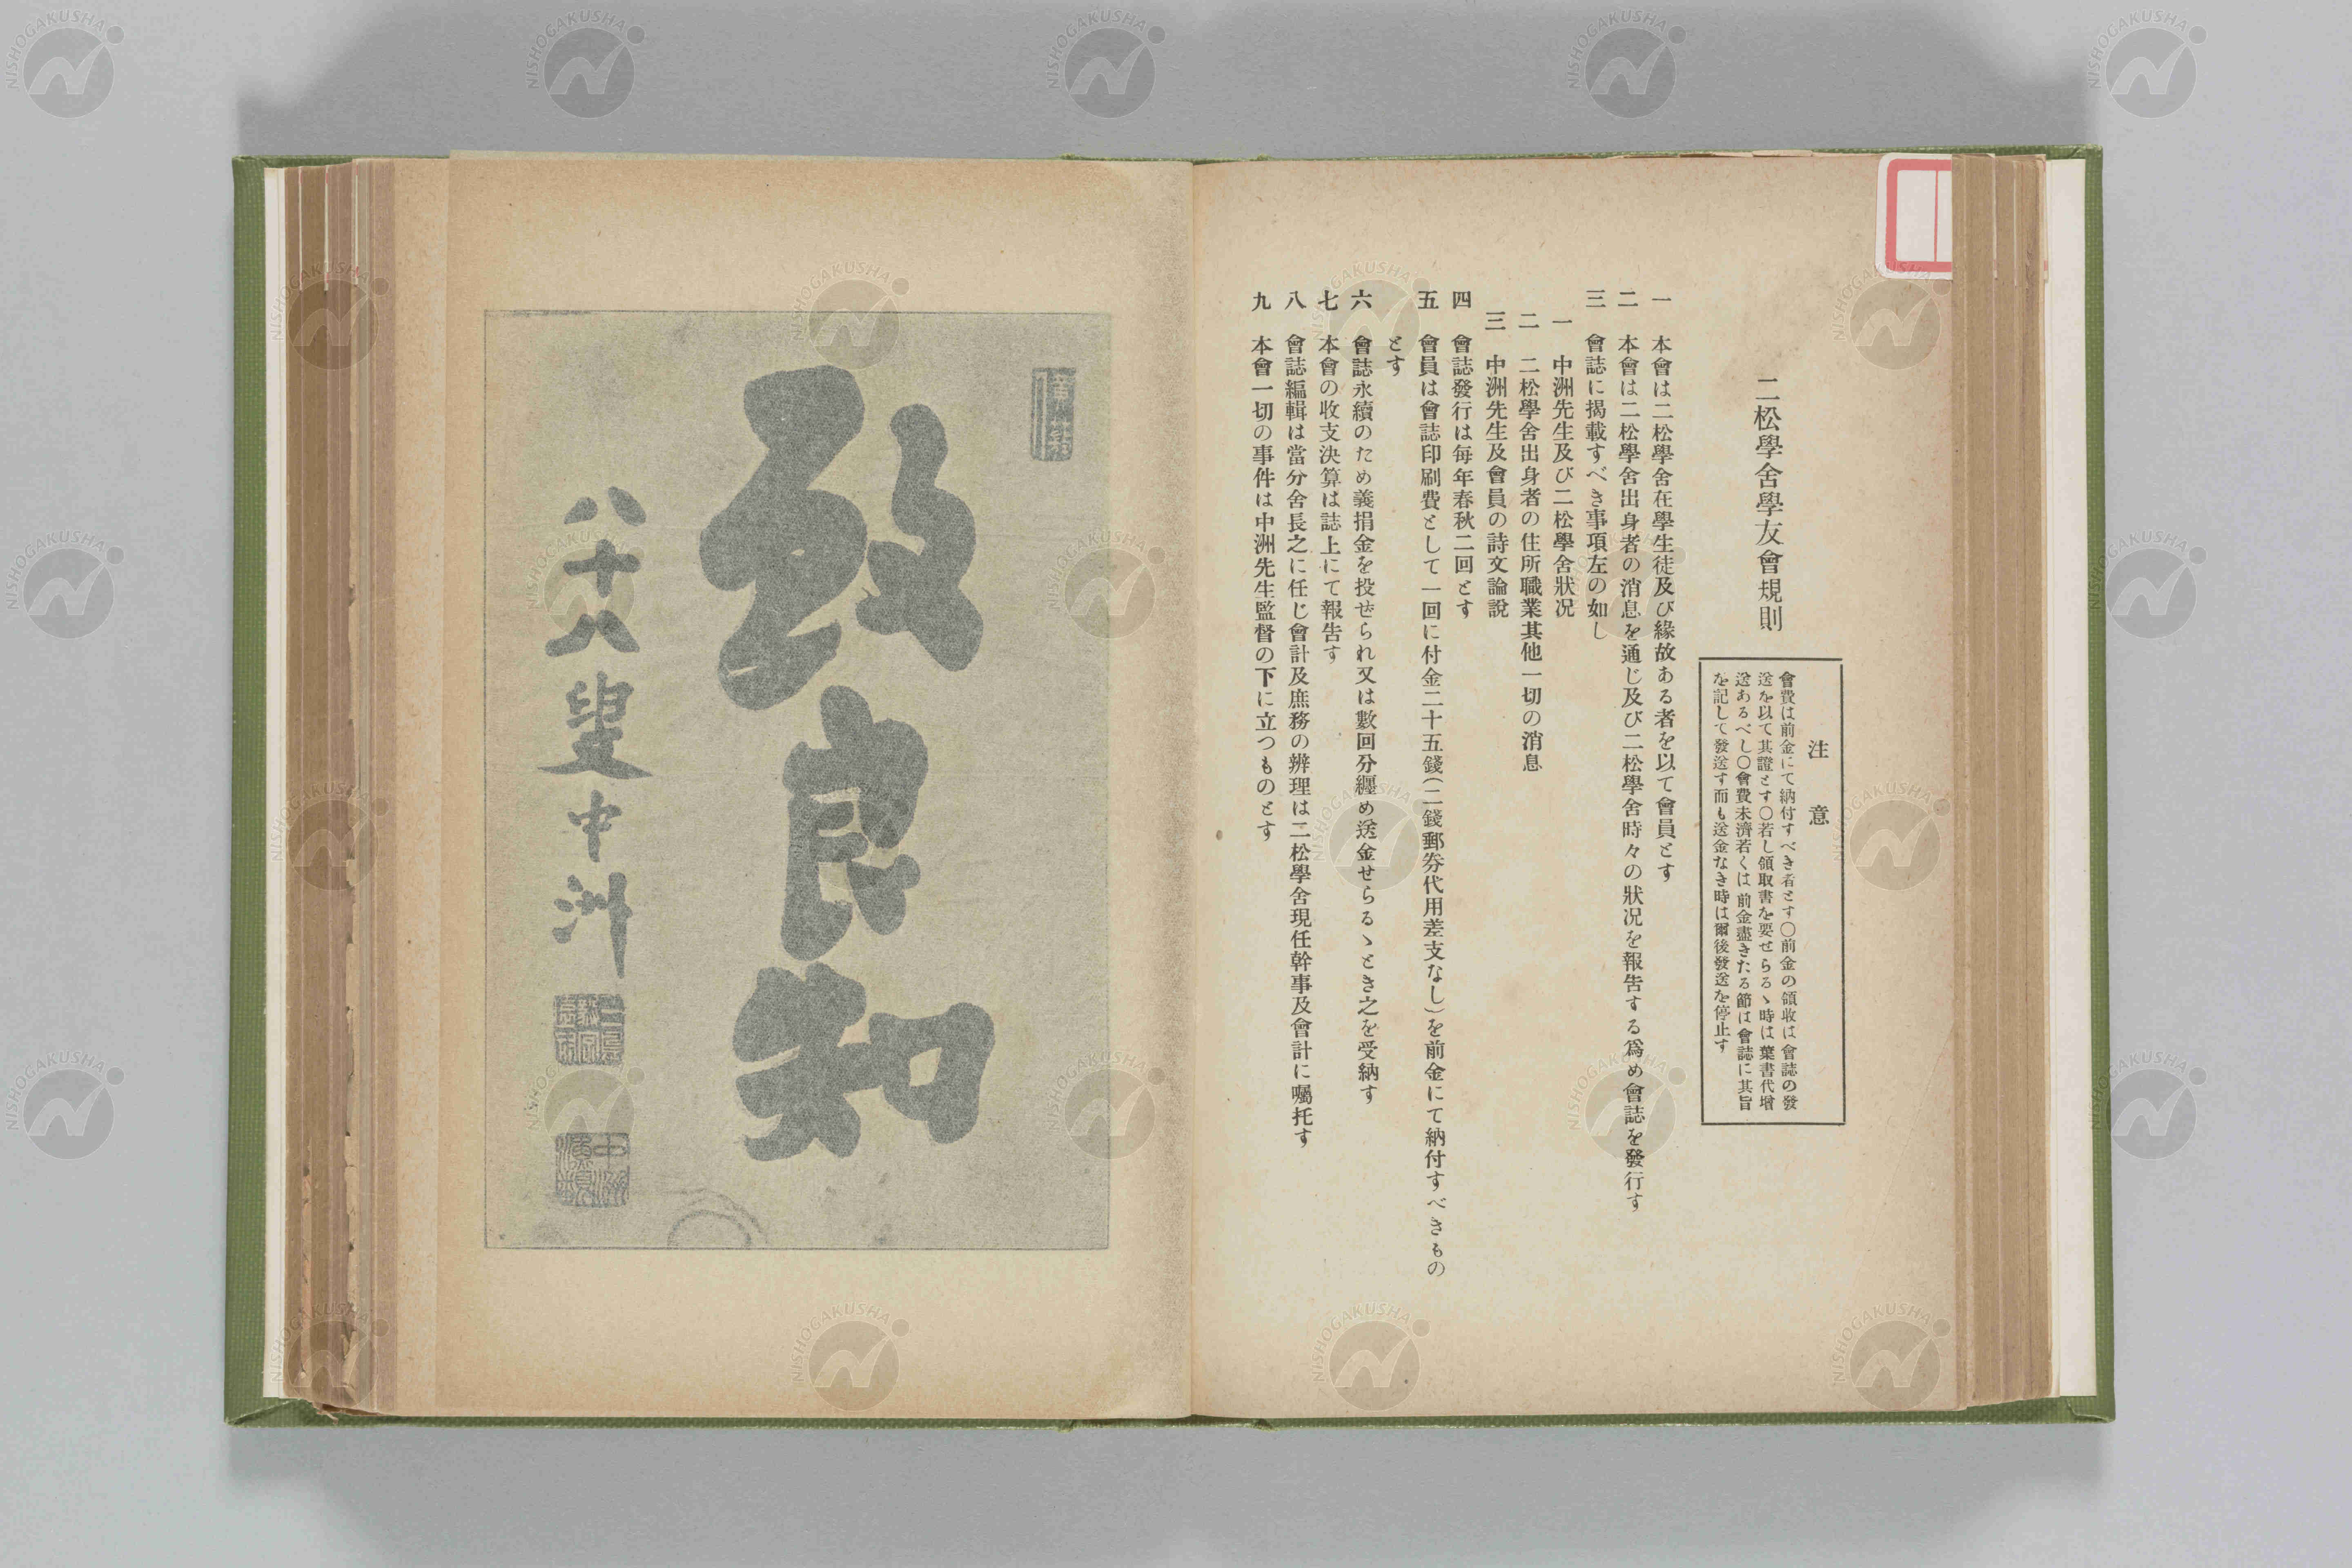 二松學舍學友會規則
注意
會費は前金にて納付すべき者とす〇前金の領收は會誌の發
送を以て其證とす〇若し領取書を要せらるゝ時は葉書代增
送あるべし〇會費未濟若くは前金盡きたる節は會誌に其旨
を記して發送す而も送金なき時は爾後發送を停止す
一 本會は二松學舍在學生徒及び緣故ある者を以て會員とす
二 本會は二松學舍出身者の消息を通じ及び二松學舍時々の狀況を報告する爲め會誌を發行す
三 會誌に揭載すべき事項左の如し
一 中洲先生及び二松學舍狀況
二 二松學舍出身者の住所職業其他一切の消息
三 中洲先生及會員の詩文論說
四 會誌發行は每年春秋二回とす
五 會員は會誌印刷費として一回に付金二十五錢(二錢郵券代用差支なし)を前金にて納付すべきもの
とす
六 會誌永續のため義捐金を投せられ又は數回分纏め送金せらるゝとき之を受納す
七 本會の收支決算は誌上にて報告す
八 會誌編輯は當分舍長之に任じ會計及庶務の辨理は二松學舍現任幹事及會計に囑托す
九 本會一切の事件は中洲先生監督の下に立つものとす
致良知
八十八叟中洲
NISHOGAKUSHA